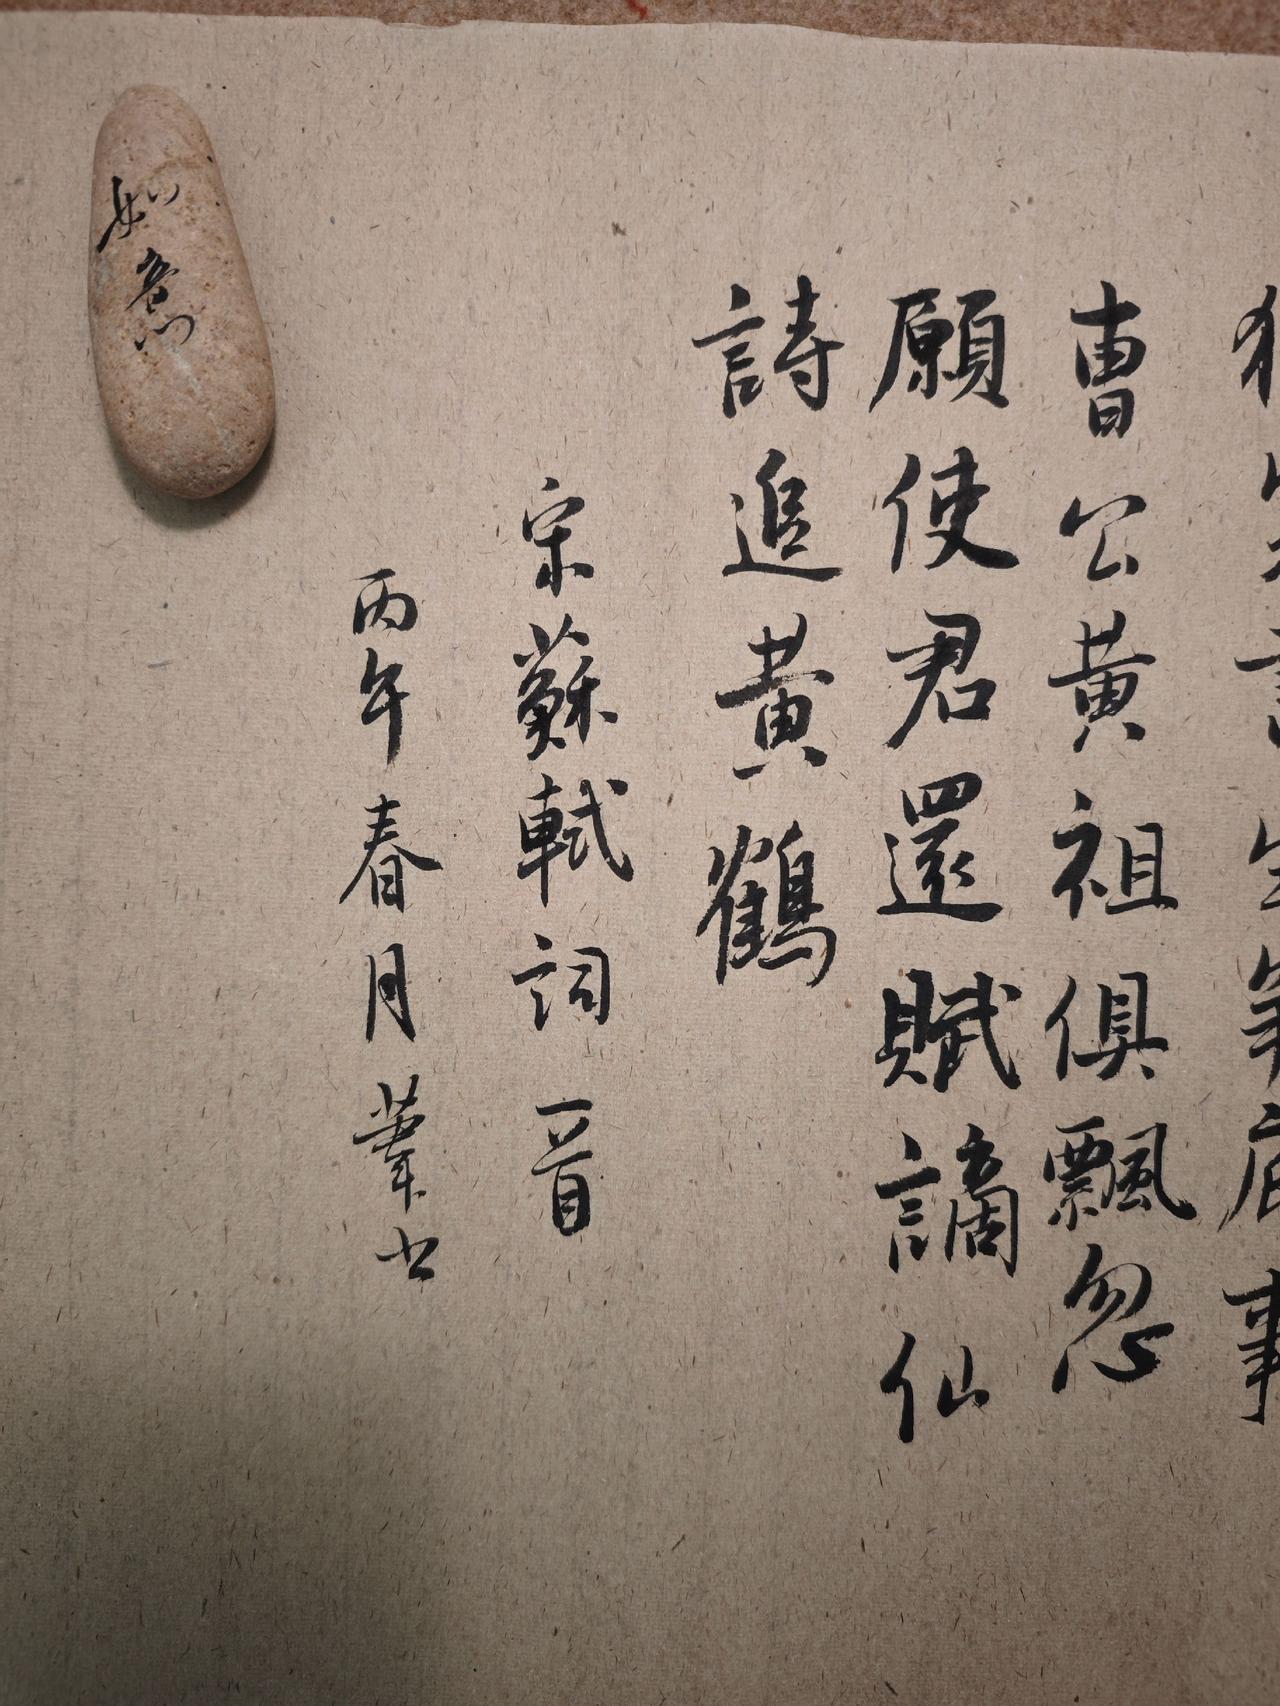 獨笑書生爭底事
曹公黃祖俱飄忽
願使君還賦謫仙
詩追黃鶴
宋蘇軾詞一首
丙午春月書
如意